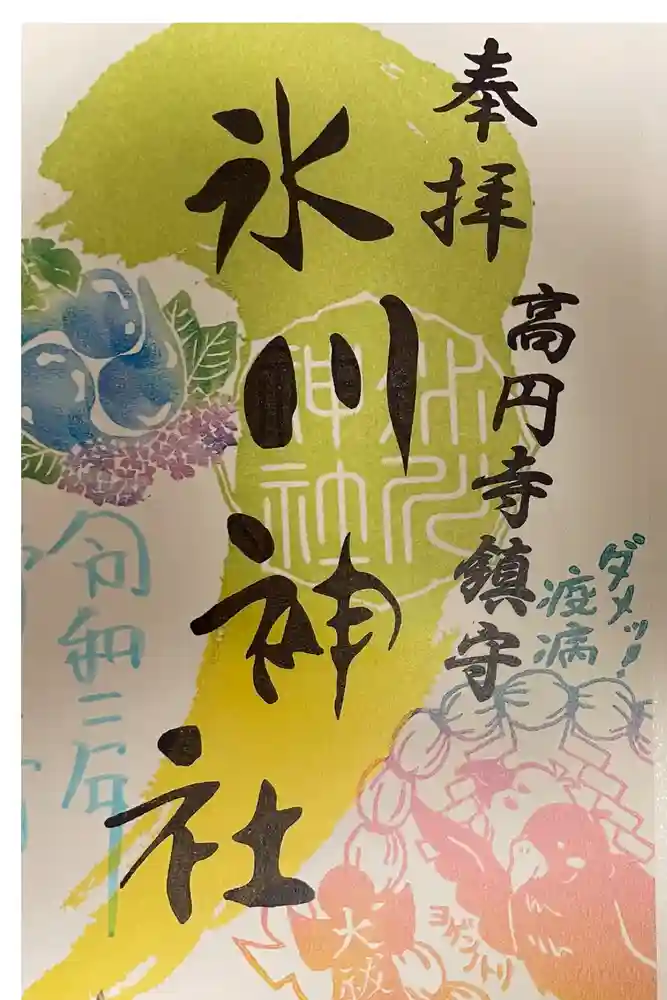 奉拝
高円寺鎮守
氷川神社
氷川
神社
ダメッ!
疫病
ヨゲンノトリ
大祓
令和二年